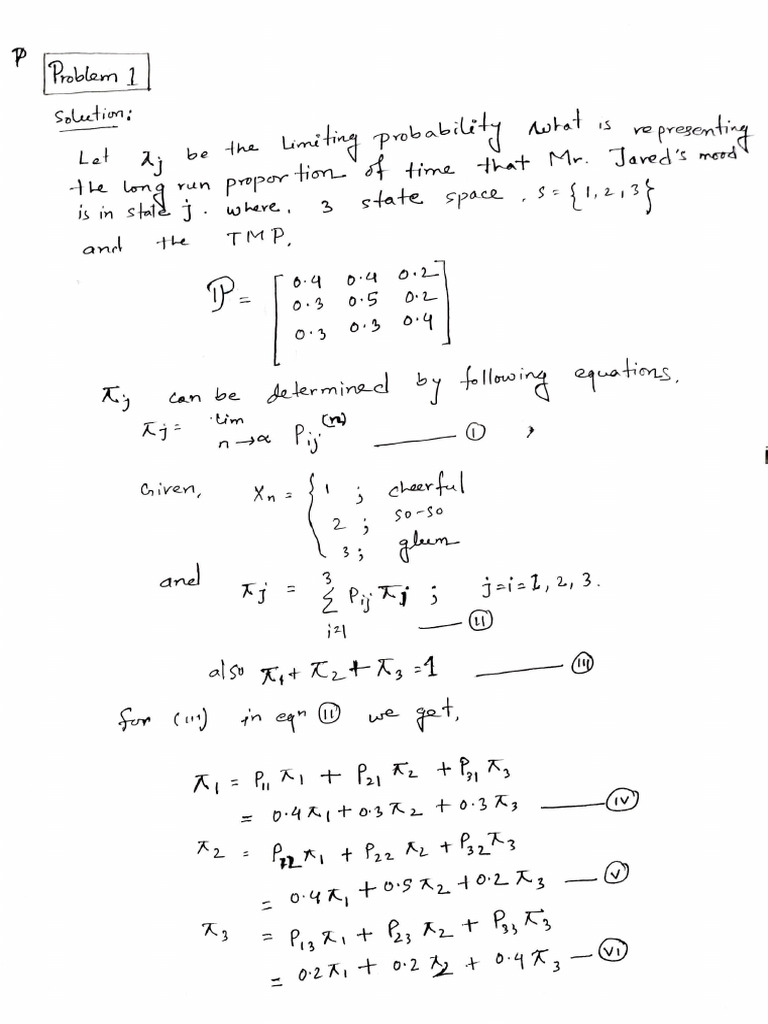 Problem 1
Solution:
Let πj be the limiting probability what is representing
the long run proportion of time that Mr. Jared's mood
is in state j. where, 3 state space, S = {1, 2, 3}
and the TMP,
P = [ 0.4 0.4 0.2
0.3 0.5 0.2
0.3 0.3 0.4 ]
πj can be determined by following equations,
πj = lim n→∝ Pij^(n) —— (I) ,
Given, Xn = { 1 ; cheerful
2 ; so-so
3 ; glum
and πj = Σ_{i=1}^{3} Pij πj ; j=i=1, 2, 3.
—— (II)
also π1 + π2 + π3 = 1 —— (III)
for (III) in eqn (II) we get,
π1 = P11 π1 + P21 π2 + P31 π3
= 0.4π1 + 0.3π2 + 0.3π3 —— (IV)
π2 = P12 π1 + P22 π2 + P32 π3
= 0.4π1 + 0.5π2 + 0.2π3 —— (V)
π3 = P13 π1 + P23 π2 + P33 π3
= 0.2π1 + 0.2π2 + 0.4π3 —— (VI)